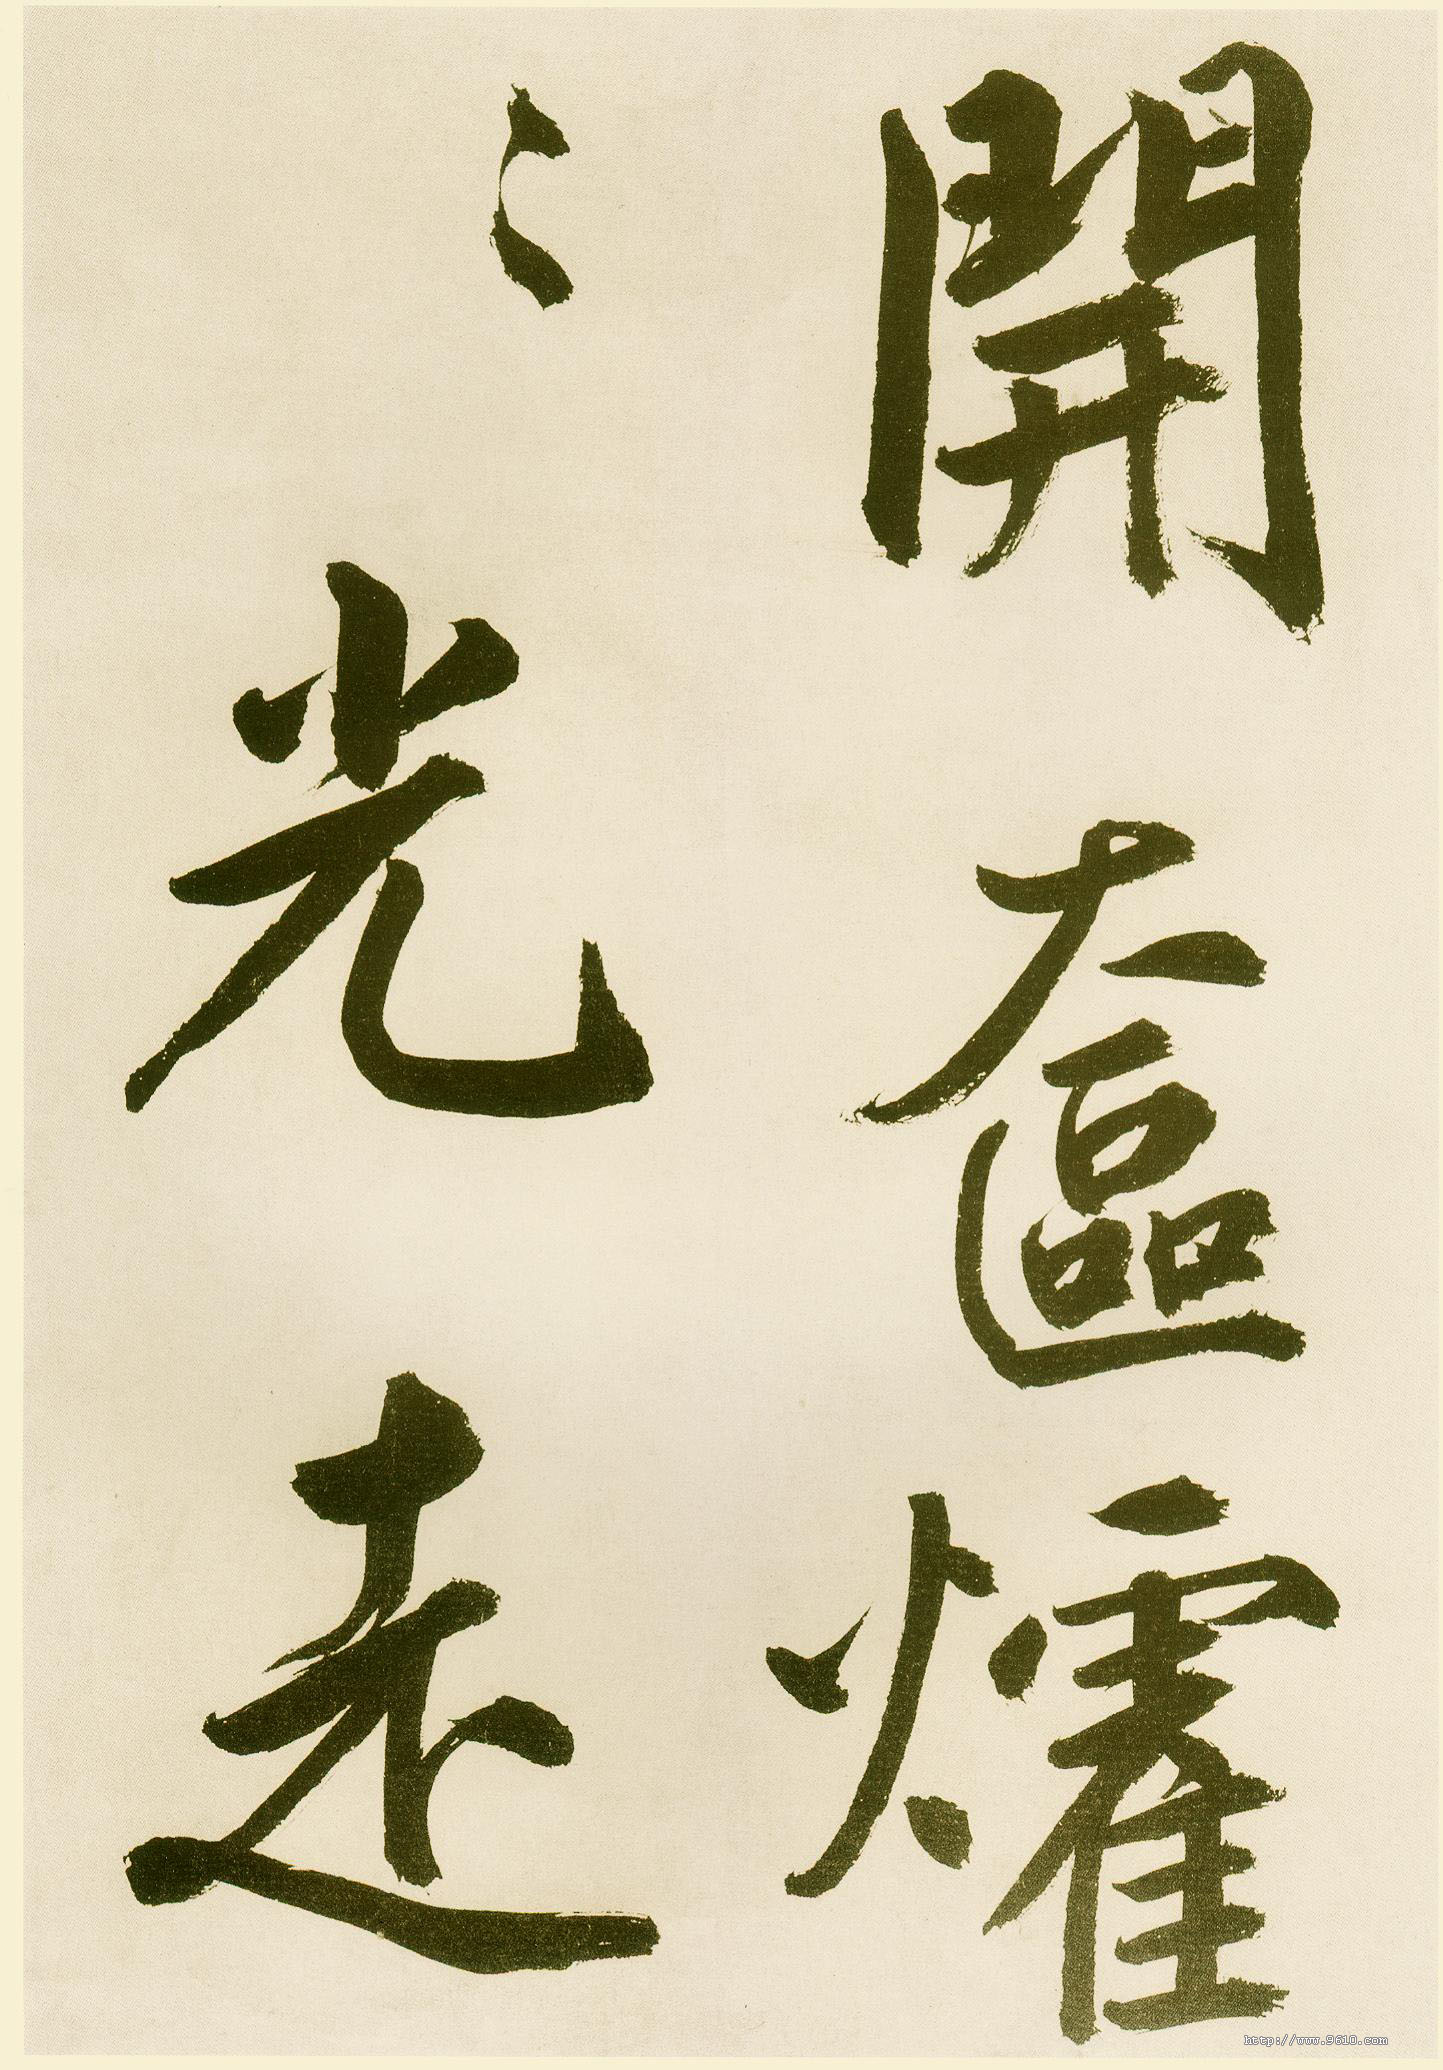 開奩㸌
〻光走
http://www.9610.com